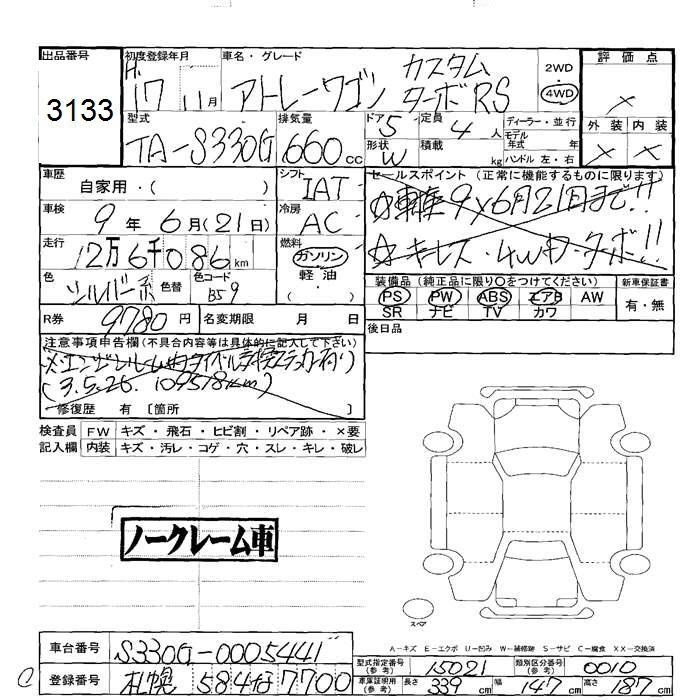 出品番号
3133
初度登録年月
H 17 11月
車名・グレード
アトレーワゴン カスタム ターボRS
2WD
4WD
評価点
×
外装 内装
× ×
型式
TA-S330G
排気量
660cc
ドア 5
形状 W
定員 4人
積載 kg
ディーラー・並行
モデル年式 年
ハンドル 左・右
車歴
自家用・( )
車検
9年 6月(21日)
走行
12万6千086km
色
シルバー系
色替
色コード
B59
R券
9780円
名変期限 月 日
シフト
IAT
冷房
AC
燃料
ガソリン
軽油
・( )
セールスポイント(正常に機能するものに限ります)
☆車検9×6月21日まで!!
☆キーレス・4WD・ターボ!!
装備品(純正品に限り〇をつけてください)
PS PW ABS エアB AW
SR ナビ TV カワ
新車保証書
有・無
後日品
注意事項申告欄(不具合内容等は具体的に記入して下さい)
※エンジンルーム内タイベル交換ステッカー有り
(3.5.26. 109578km)
修復歴 有〔箇所 〕
検査員 FW キズ・飛石・ヒビ割・リペア跡・×要
記入欄 内装 キズ・汚レ・コゲ・穴・スレ・キレ・破レ
ノークレーム車
スペア
A－キズ E－エクボ U－凹み W－補修跡 S－サビ C－腐食 XX－交換済
車台番号 S330G-0005441
登録番号 札幌 584 な 7700
型式指定番号(参考) 15021
類別区分番号(参考) 0010
車庫証明用(参考) 長さ 339cm 幅 147cm 高さ 187cm